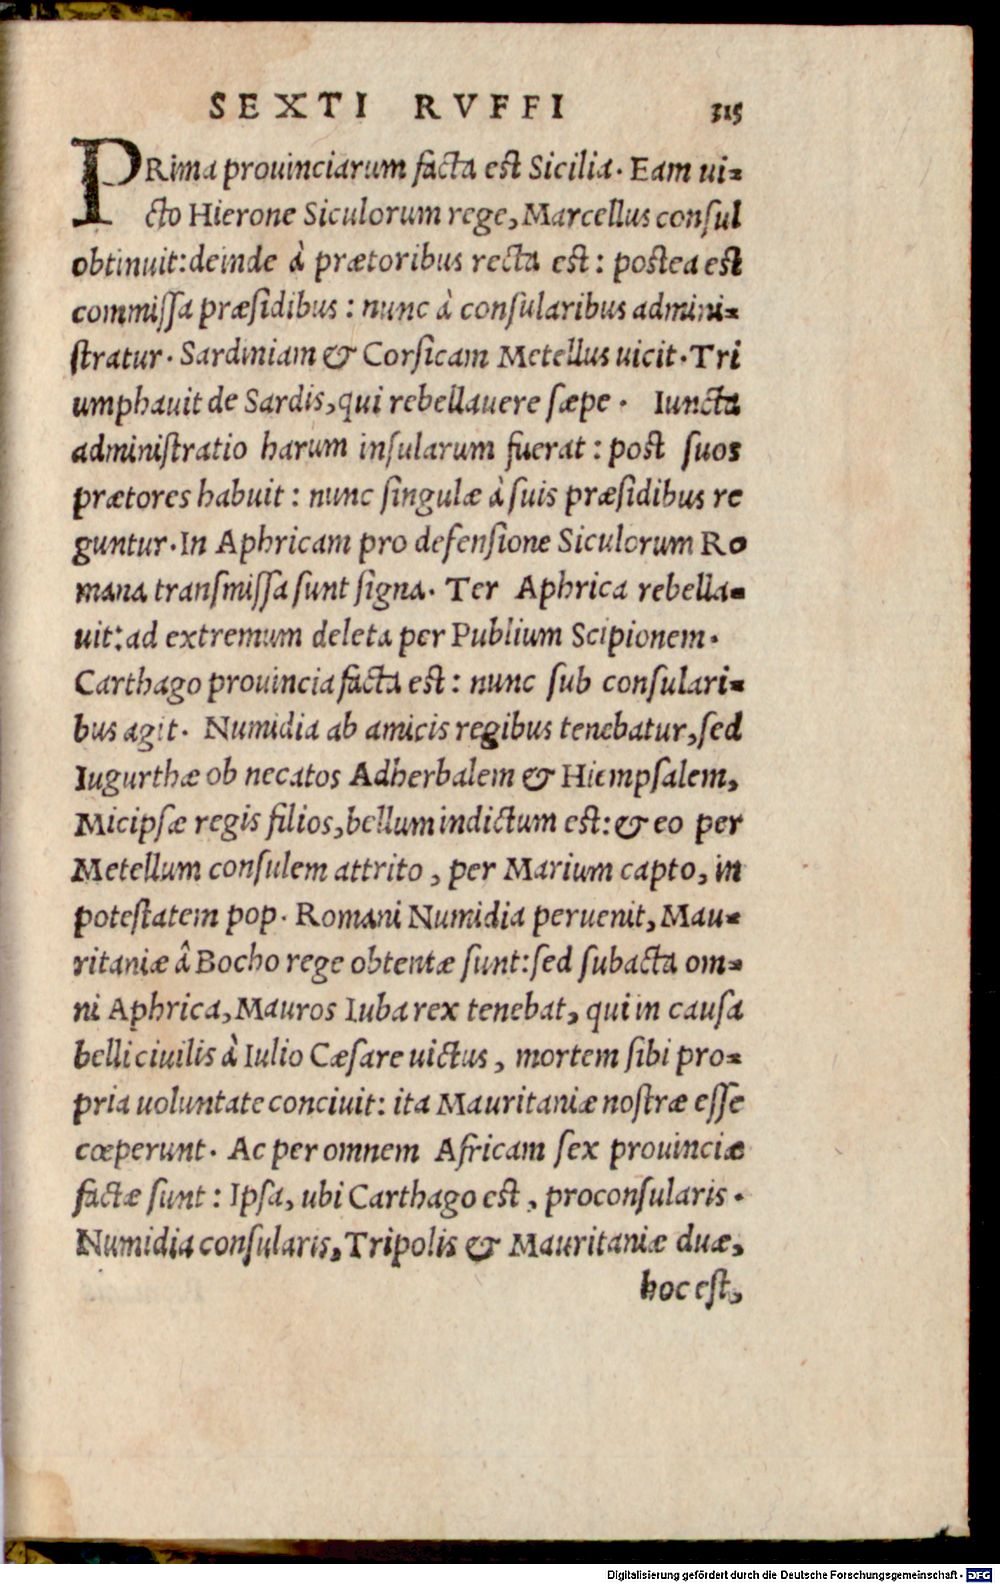 SEXTI RVFFI 315
PRima prouinciarum facta est Sicilia. Eam ui-
cto Hierone Siculorum rege, Marcellus consul
obtinuit: deinde à prætoribus recta est: postea est
commissa præsidibus: nunc à consularibus admini-
stratur. Sardiniam & Corsicam Metellus uicit. Tri
umphauit de Sardis, qui rebellauere sæpe. Iuncta
administratio harum insularum fuerat: post suos
prætores habuit: nunc singulæ à suis præsidibus re
guntur. In Aphricam pro defensione Siculorum Ro
mana transmissa sunt signa. Ter Aphrica rebella-
uit: ad extremum deleta per Publium Scipionem.
Carthago prouincia facta est: nunc sub consulari-
bus agit. Numidia ab amicis regibus tenebatur, sed
Iugurthæ ob necatos Adherbalem & Hiempsalem,
Micipsæ regis filios, bellum indictum est: & eo per
Metellum consulem attrito, per Marium capto, in
potestatem pop. Romani Numidia peruenit, Mau-
ritaniæ â Bocho rege obtentæ sunt: sed subacta om-
ni Aphrica, Mauros Iuba rex tenebat, qui in causa
belli ciuilis à Iulio Cæsare uictus, mortem sibi pro-
pria uoluntate conciuit: ita Mauritaniæ nostræ esse
cœperunt. Ac per omnem Africam sex prouinciæ
factæ sunt: Ipsa, ubi Carthago est, proconsularis.
Numidia consularis, Tripolis & Mauritaniæ duæ,
hoc est,
Digitalisierung gefördert durch die Deutsche Forschungsgemeinschaft - DFG